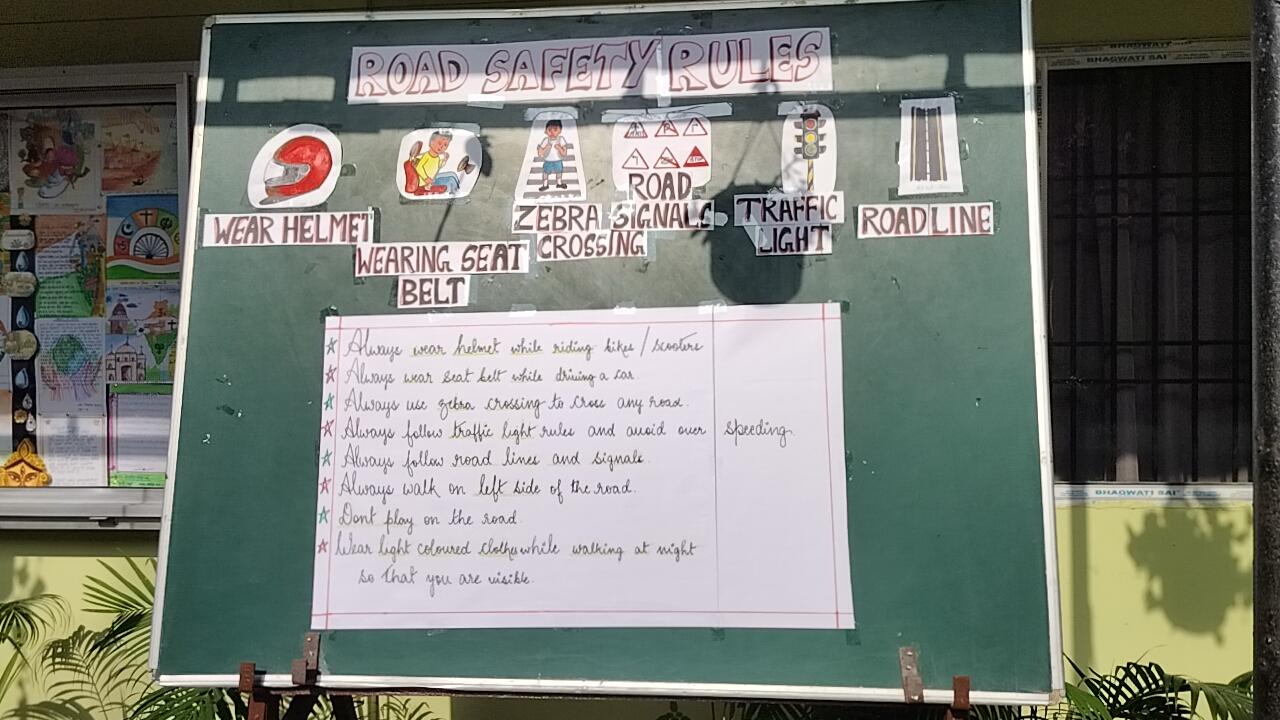 ROAD SAFETY RULES
WEAR HELMET
WEARING SEAT
BELT
ZEBRA
CROSSING
ROAD
SIGNALS
TRAFFIC
LIGHT
ROAD LINE
Always wear helmet while riding bikes / scooters
Always wear seat belt while driving a car.
Always use zebra crossing to cross any road.
Always follow traffic light rules and avoid over speeding.
Always follow road lines and signals.
Always walk on left side of the road.
Dont play on the road.
Wear light coloured clothes while walking at night
so that you are visible.
BHAGWATI SAI
BHAGWATI SAI
BHAGWATI SAI